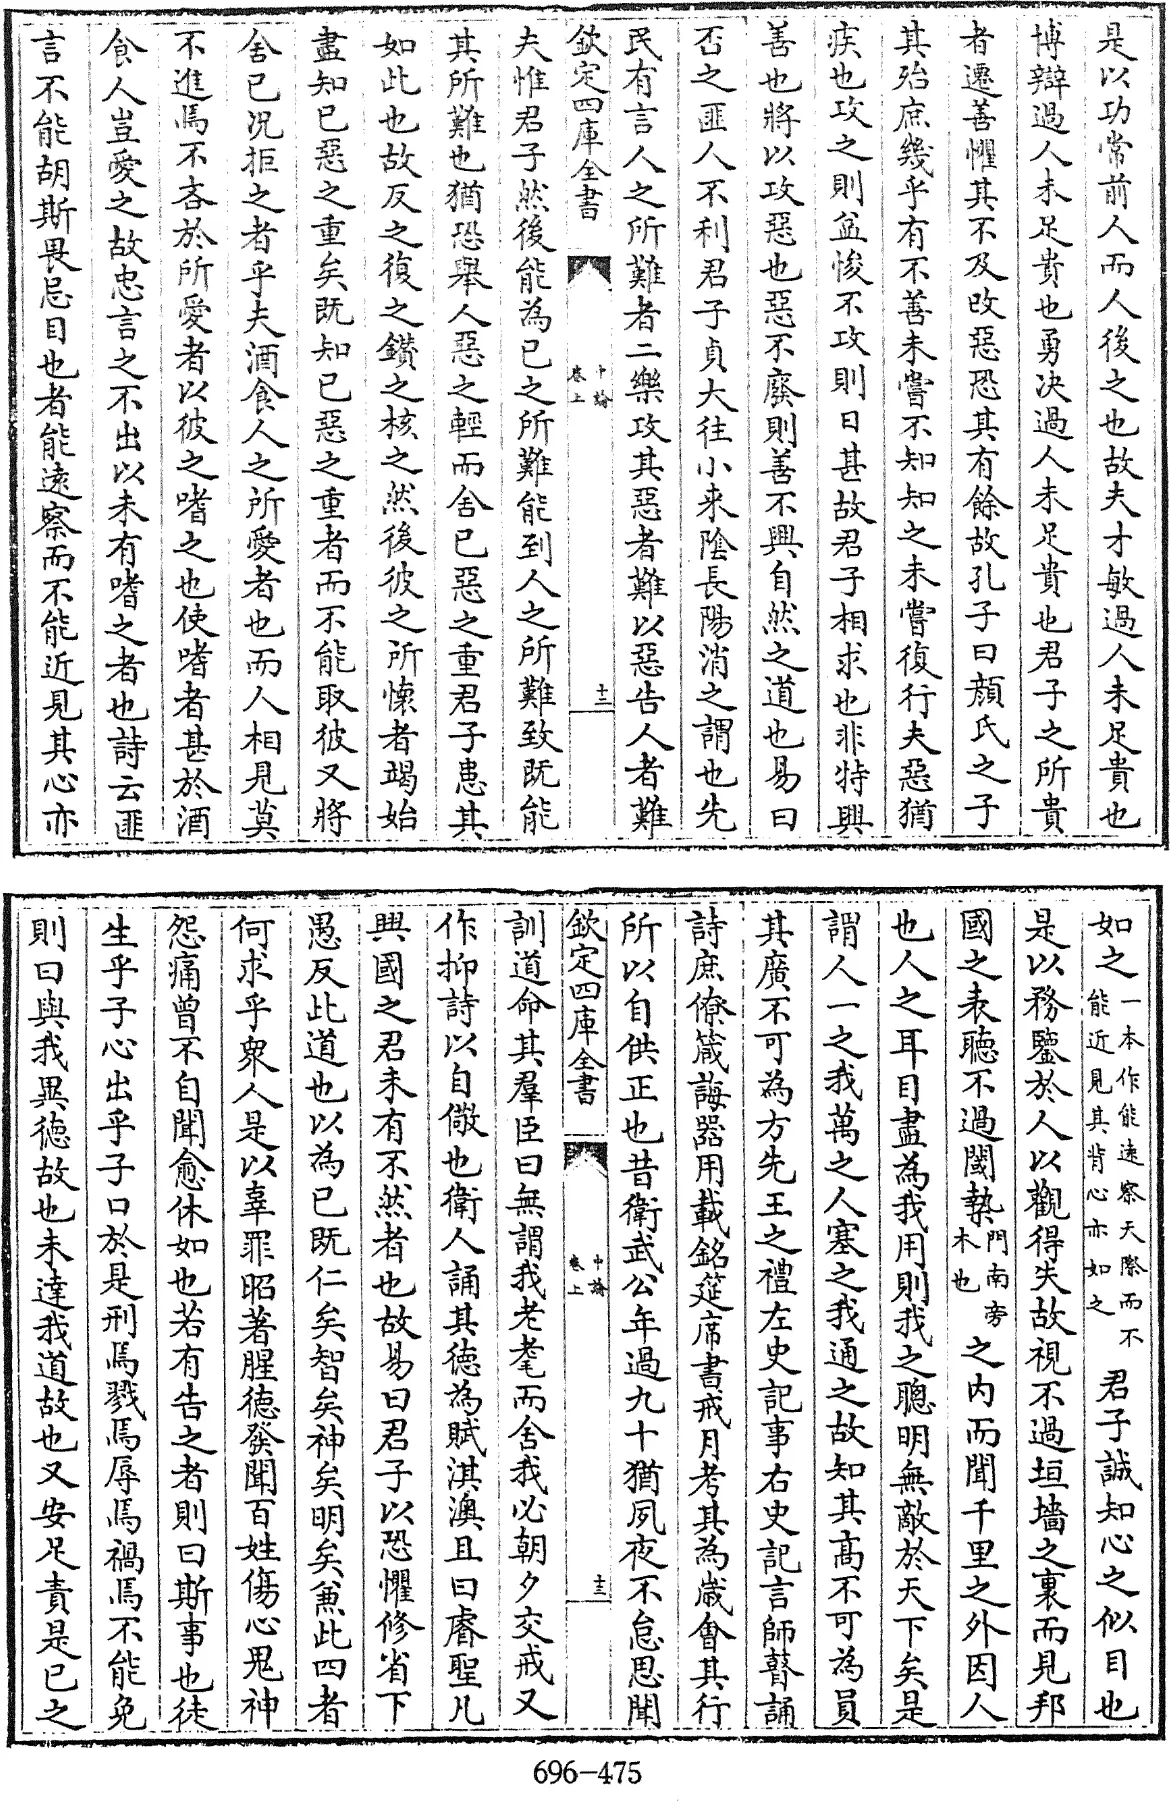 是以功常前人而人後之也故夫才敏過人未足貴也
博辯過人未足貴也勇決過人未足貴也君子之所貴
者遷善懼其不及改惡恐其有餘故孔子曰顏氏之子
其殆庶幾乎有不善未嘗不知知之未嘗復行夫惡猶
疾也攻之則益悛不攻則日甚故君子相求也非特興
善也將以攻惡也惡不廢則善不興自然之道也易曰
否之匪人不利君子貞大往小來陰長陽消之謂也先
民有言人之所難者二樂攻其惡者難以惡告人者難
欽定四庫全書
中論
卷上
十三
夫惟君子然後能為已之所難能到人之所難致既能
其所難也猶恐舉人惡之輕而舍已惡之重君子患其
如此也故反之復之鑚之核之然後彼之所懷者竭始
盡知已惡之重矣既知已惡之重者而不能取彼又將
舍已況拒之者乎夫酒食人之所愛者也而人相見莫
不進焉不吝於所愛者以彼之嗜之也使嗜者甚於酒
食人豈愛之故忠言之不出以未有嗜之者也詩云匪
言不能胡斯畏忌目也者能逺察而不能近見其心亦
如之一本作能逺察天際而不能近見其背心亦如之君子誠知心之似目也
是以務鑒於人以觀得失故視不過垣墻之裏而見邦
國之表聽不過閾槷門南旁木也之内而聞千里之外因人
也人之耳目盡為我用則我之聰明無敵於天下矣是
謂人一之我萬之人塞之我通之故知其高不可為員
其廣不可為方先王之禮左史記事右史記言師瞽誦
詩庶僚箴誨器用載銘筵席書戒月考其為歲會其行
所以自供正也昔衛武公年過九十猶夙夜不怠思聞
欽定四庫全書
中論
卷上
十三
訓道命其羣臣曰無謂我老耄而舍我必朝夕交戒又
作抑詩以自儆也衛人誦其德為賦淇澳且曰睿聖凡
興國之君未有不然者也故易曰君子以恐懼修省下
愚反此道也以為已既仁矣智矣神矣明矣兼此四者
何求乎衆人是以辜罪昭著腥德發聞百姓傷心鬼神
怨痛曾不自聞愈休如也若有告之者則曰斯事也徒
生乎子心出乎子口於是刑焉戮焉辱焉禍焉不能免
則曰與我異德故也未達我道故也又安足責是已之
696-475